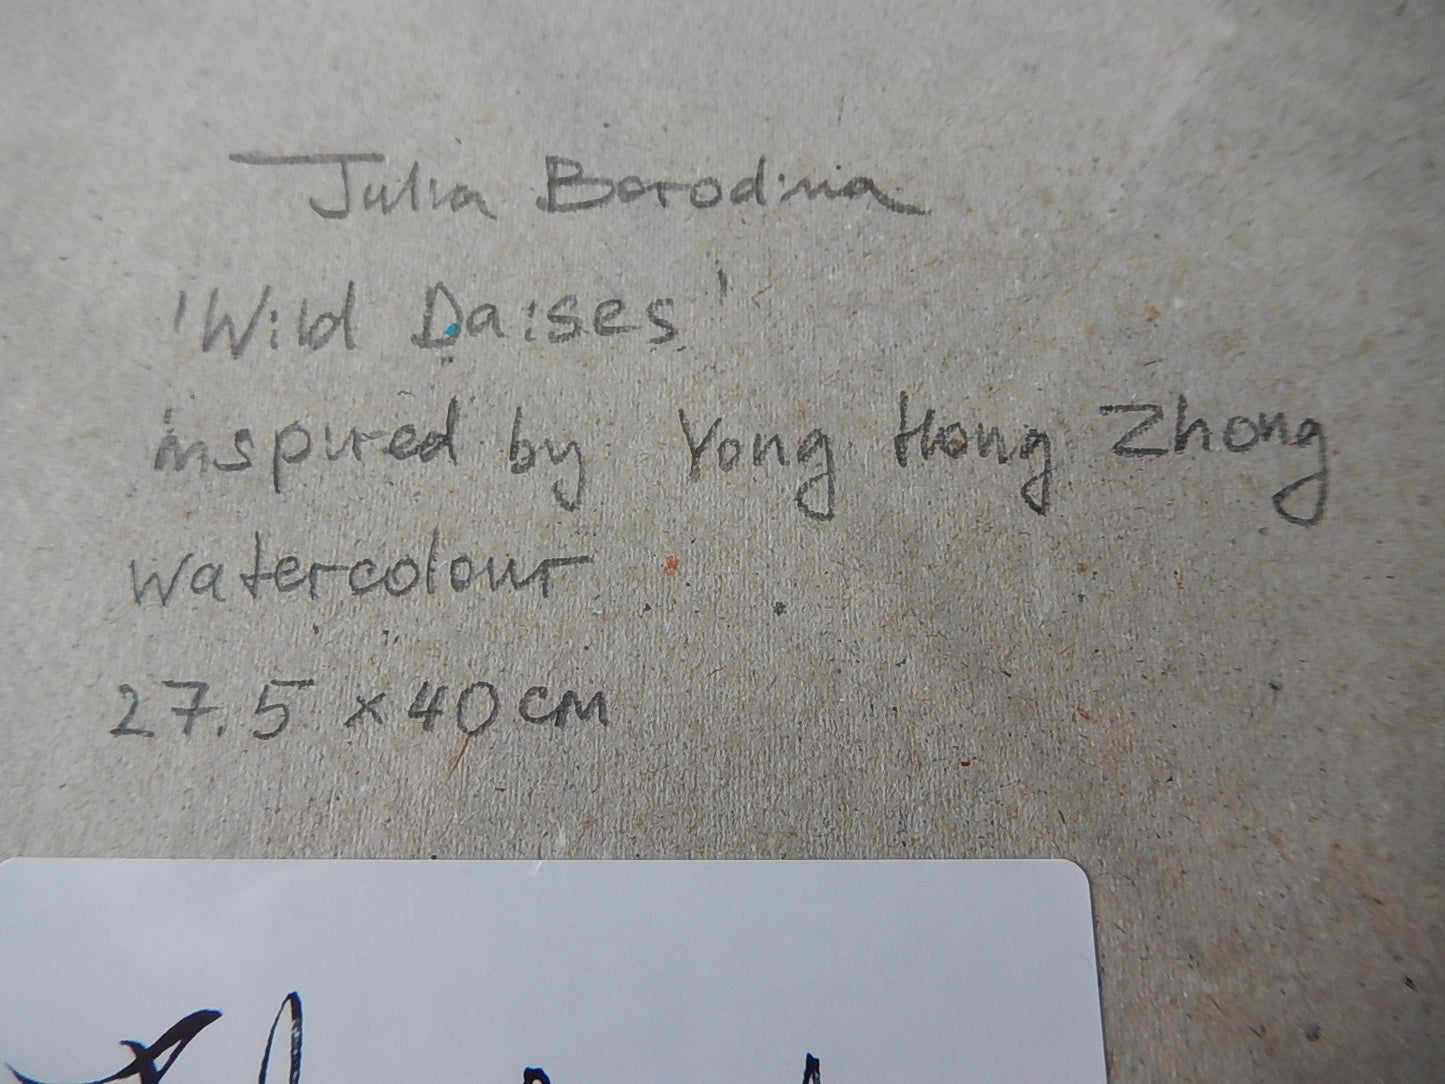 Julia Borodina
'Wild Daises'
inspired by Yong Hong Zhong
watercolour
27.5 x 40 cm